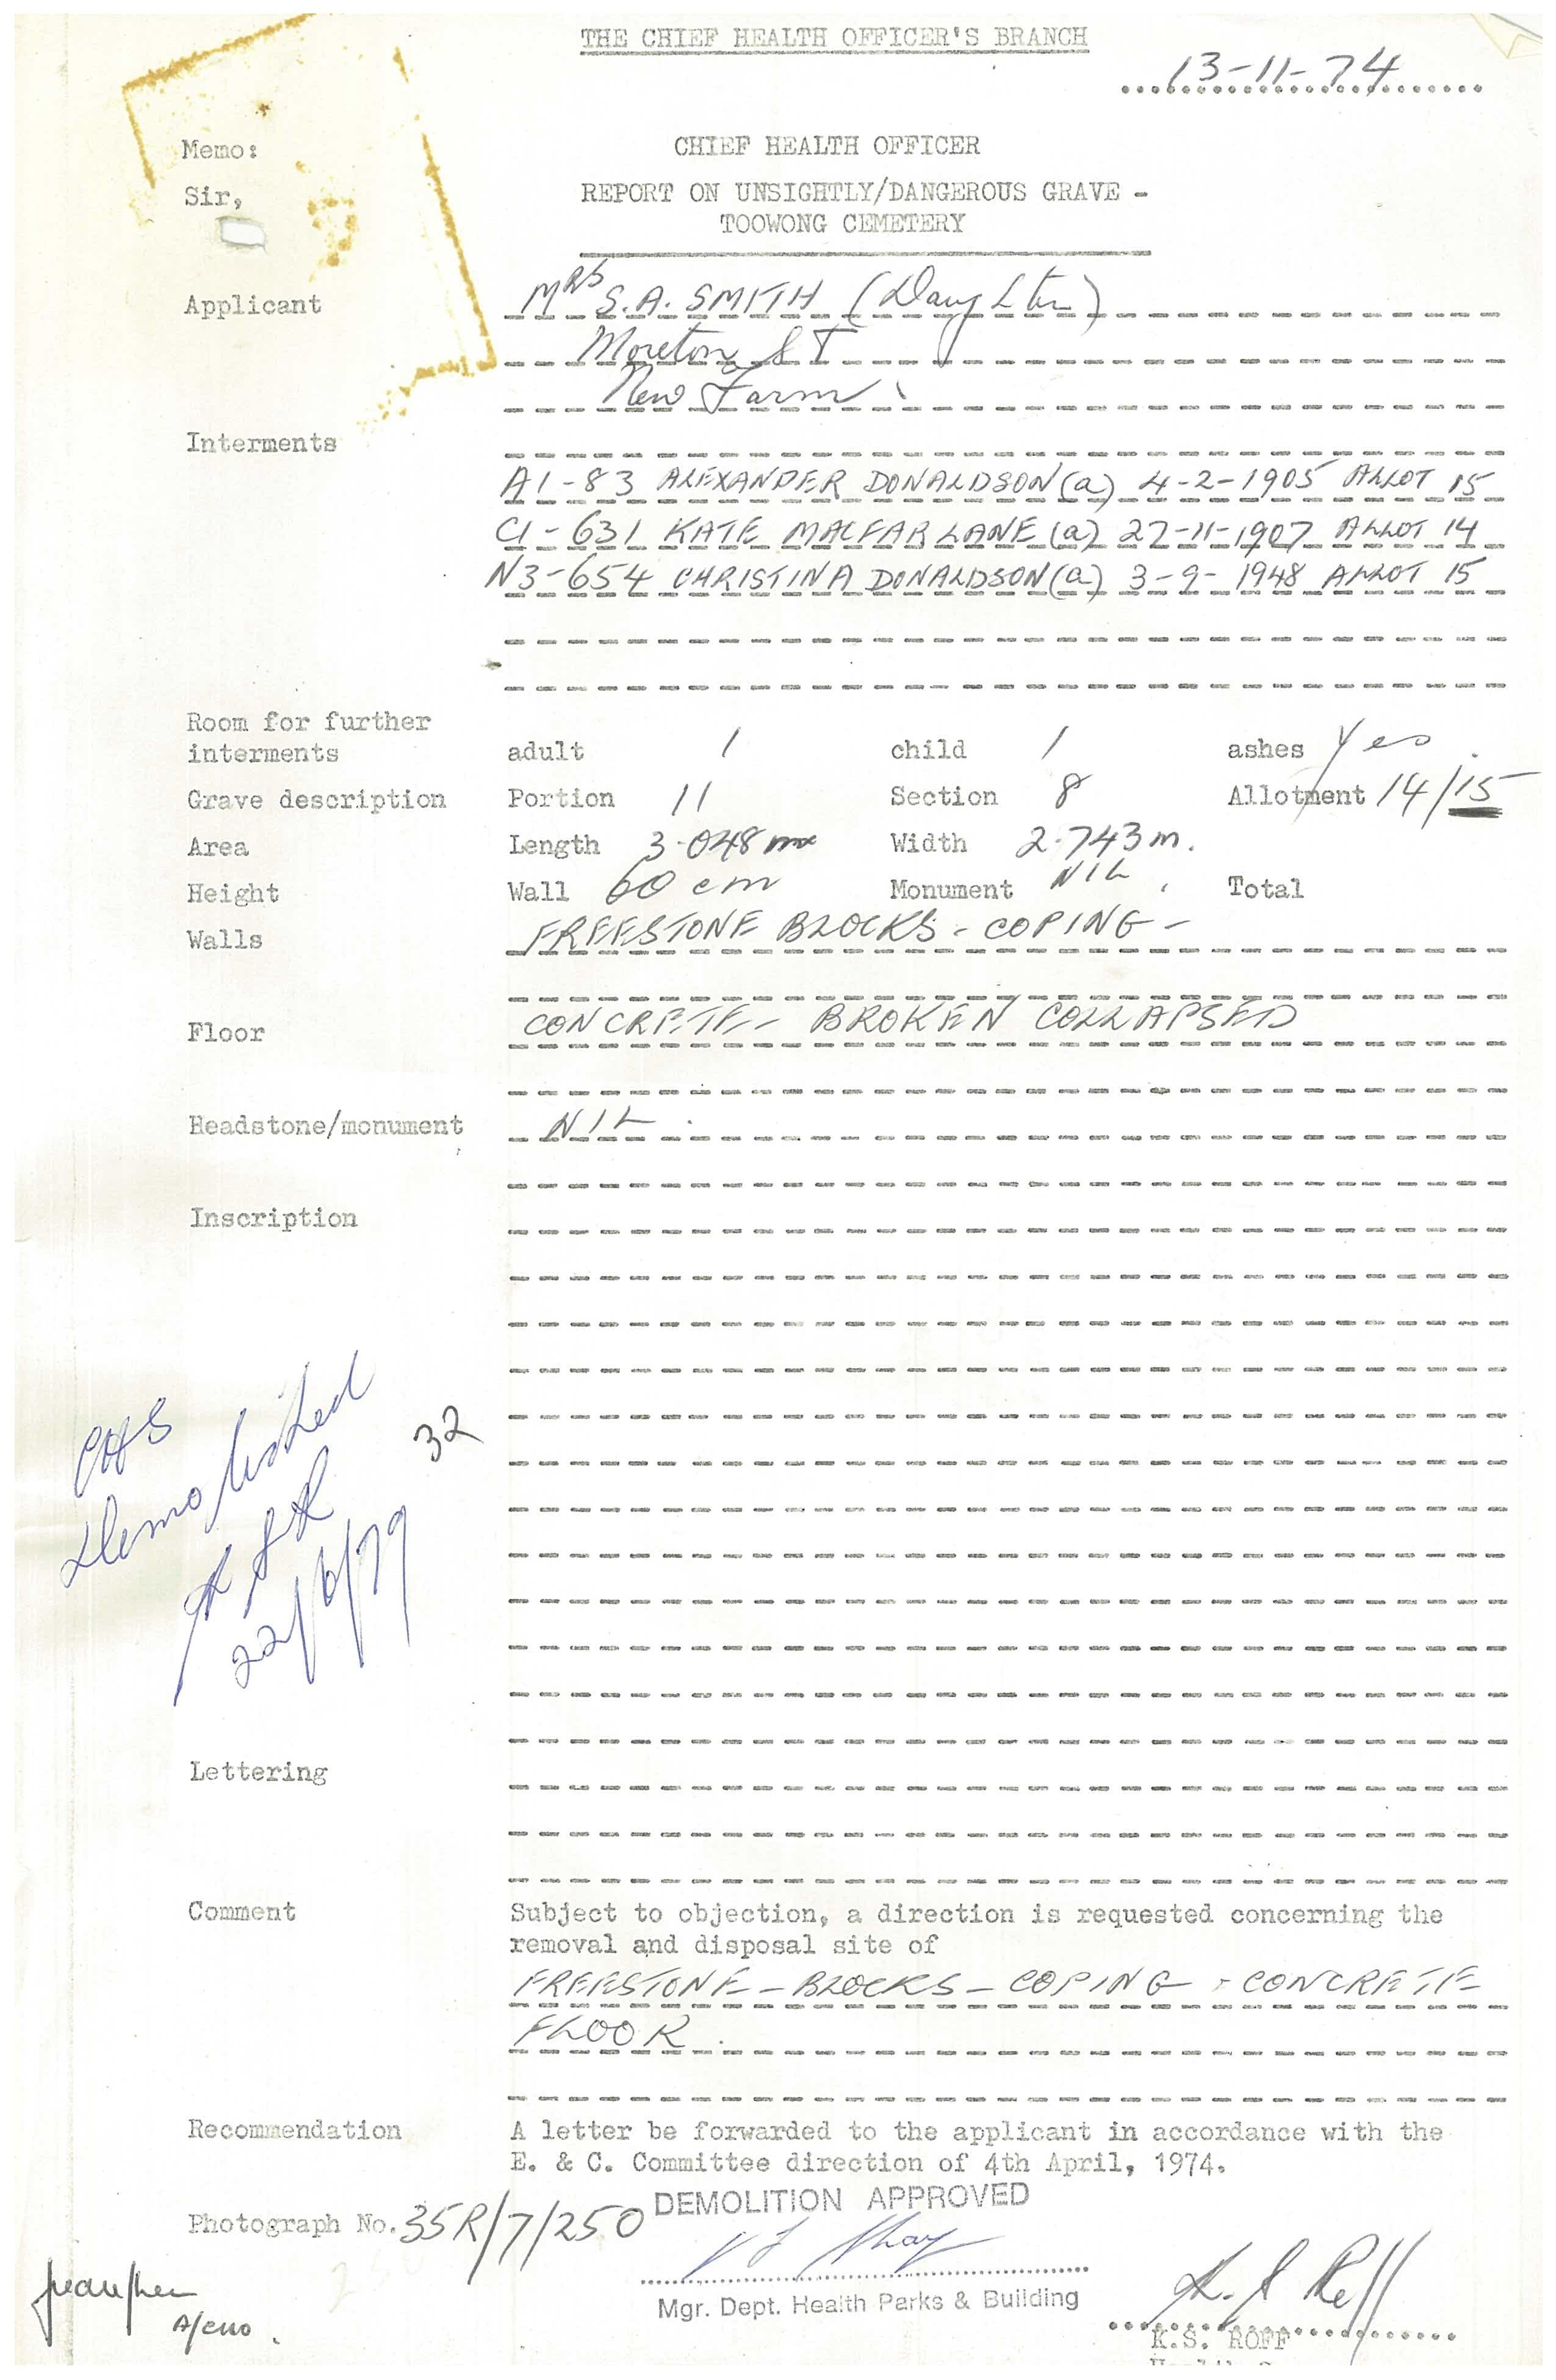 THE CHIEF HEALTH OFFICER'S BRANCH
13-11-74
Memo: CHIEF HEALTH OFFICER
Sir, REPORT ON UNSIGHTLY/DANGEROUS GRAVE -
TOOWONG CEMETERY
Applicant MRS S.A. SMITH (Daughter)
Moreton ST
New Farm
Interments
A1-83 ALEXANDER DONALDSON (a) 4-2-1905 ALLOT 15
C1-631 KATE MACFARLANE (a) 27-11-1907 ALLOT 14
N3-654 CHRISTINA DONALDSON (a) 3-9-1948 ALLOT 15
Room for further
interments adult 1 child 1 ashes Yes.
Grave description Portion 11 Section 8 Allotment 14/15
Area Length 3.048 m Width 2.743 m.
Height Wall 60 cm Monument NIL. Total
Walls FREESTONE BLOCKS - COPING -
Floor CONCRETE - BROKEN COLLAPSED
Headstone/monument NIL.
Inscription
CHS
Demolished
22/6/79
32
Lettering
Comment Subject to objection, a direction is requested concerning the
removal and disposal site of
FREESTONE - BLOCKS - COPING - CONCRETE
FLOOR.
Recommendation A letter be forwarded to the applicant in accordance with the
E. & C. Committee direction of 4th April, 1974.
DEMOLITION APPROVED
Photograph No. 35R/7/250
Mgr. Dept. Health Parks & Building
K.S. ROFF